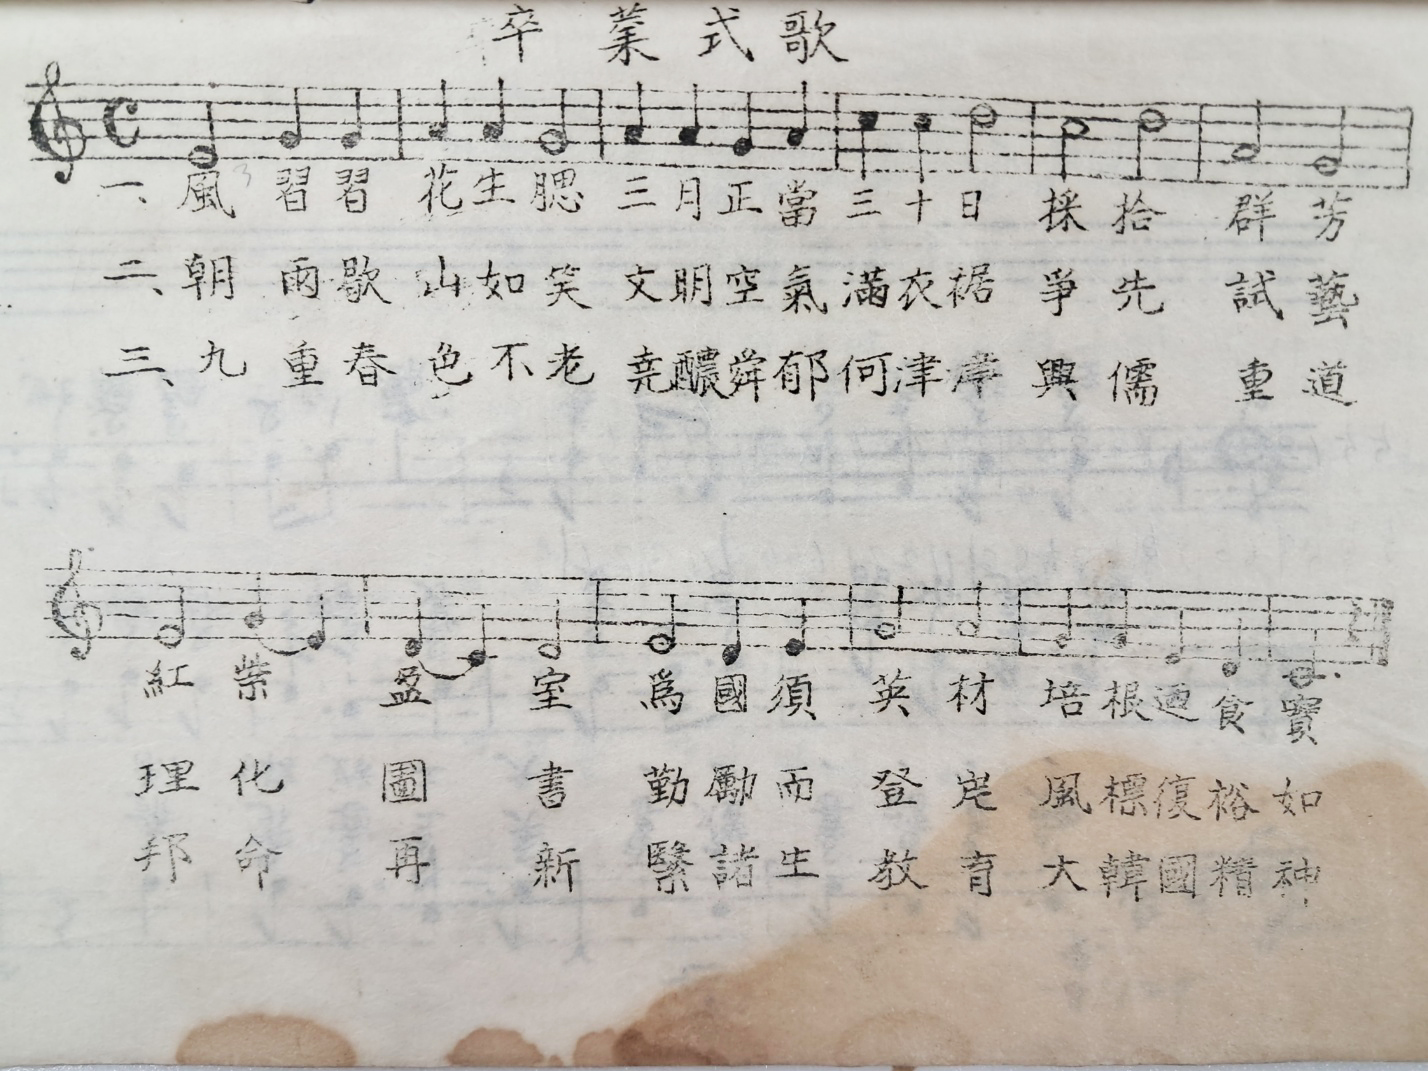 卒業式歌
一、風習習花生腮三月正當三十日採拾群芳
二、朝雨歇山如笑文明空氣滿衣裾爭先試藝
三、九重春色不老堯醲舜郁何津岸興儒重道
紅紫盈室為國須英材培根西食實
理化圖書勤勵而登 風標復裕如
邦命再新緊諸生教育大韓國精神